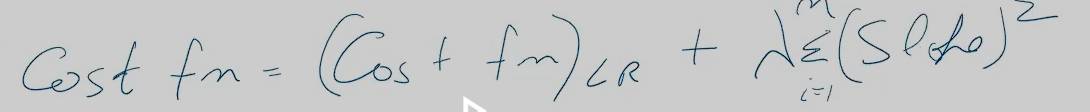 Cost fn = (Cost fn)LR + λ Σ_{i=1}^{n} (Slope)²